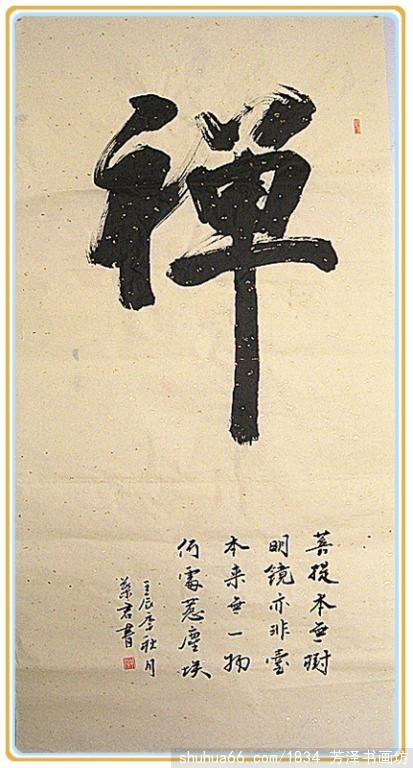 禅
菩提本無樹
明鏡亦非臺
本来無一物
何處惹塵埃
壬辰季秋月
君書
shuhua66.com/1834 芳泽书画坊